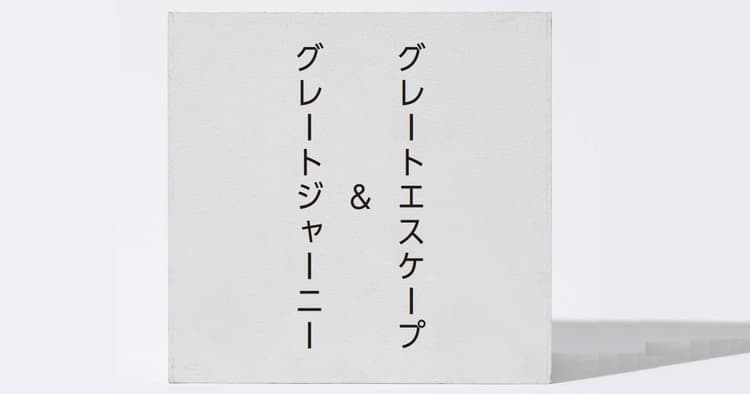 グレートエスケープ
&
グレートジャーニー